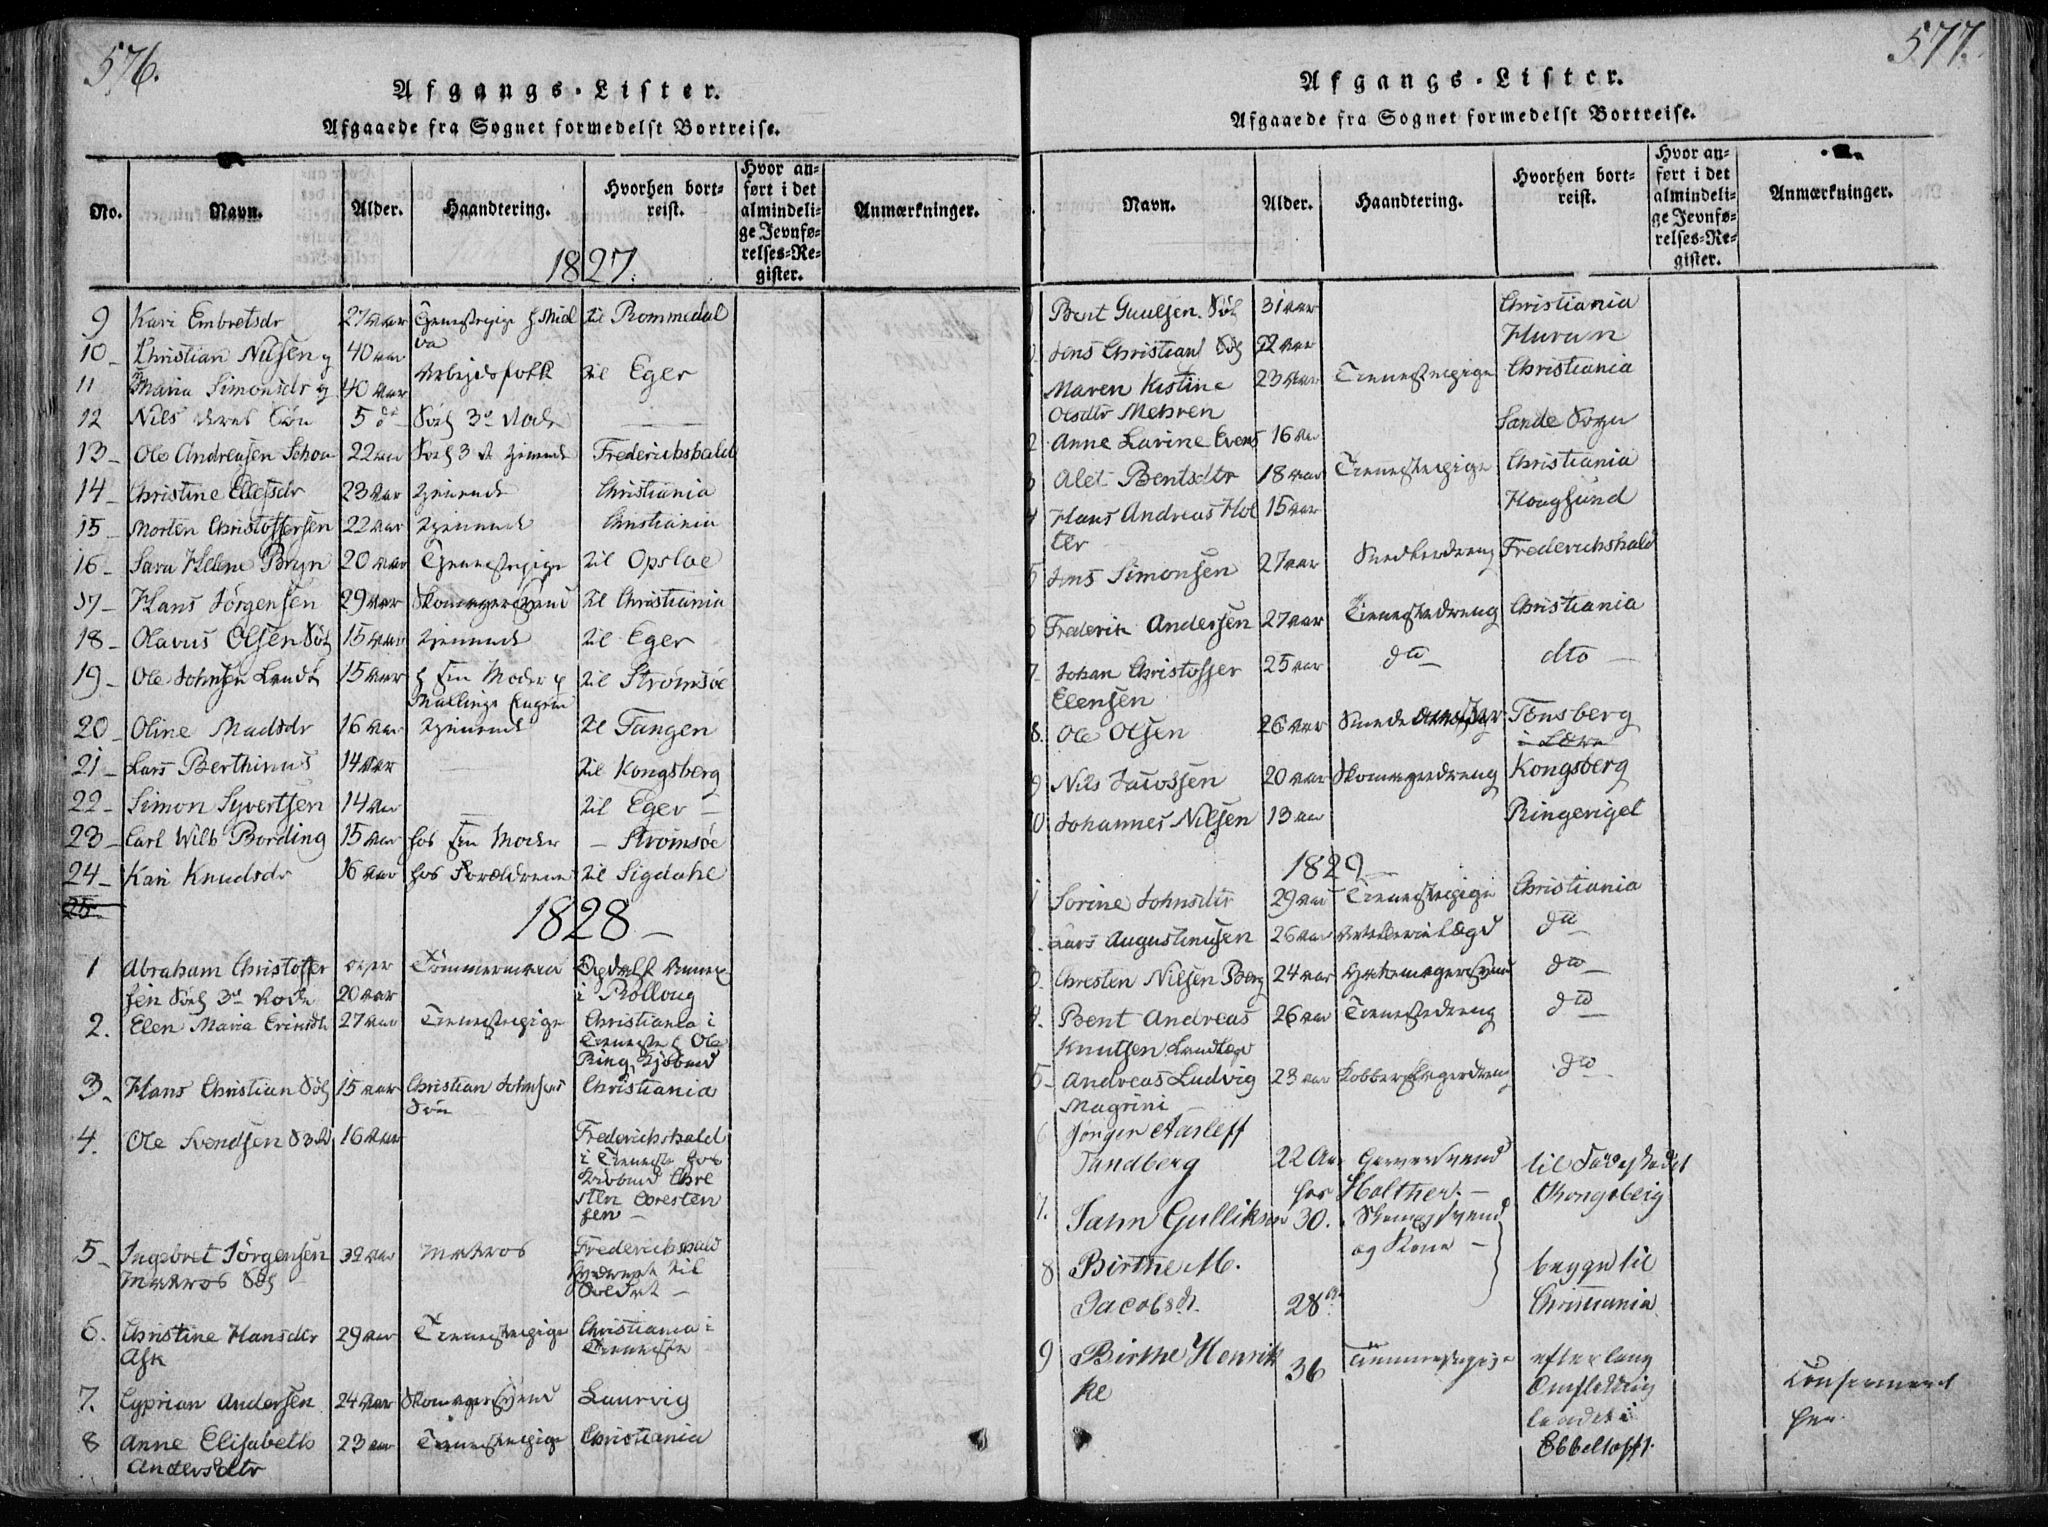 576.
Afgangs-Lister.
Afgaaede fra Sognet formedelst Bortreise.
No. Navn. Alder. Haandtering. Hvorhen bortreist. Hvor anført i det almindelige Jevnførelses-Register. Anmærkninger.
1827.
9 Kari Embretsdr 27 aar til Rommedal
10 Christian Nilsen og 40 aar
11 Maria Simonsdr og 40 aar Arbejdsfolk til Eger
12 Nils deres Søn 5 do
13 Ole Andreasen 22 aar Frederichshald
14 Christine 23 aar tjenende Christiania
15 Morten Christoffersen 22 aar tjenende Christiania
16 Sara Helene Bryn 20 aar Tjenestepige til Opsloe
17 Hans Jørgensen 29 aar Skomagersvend til Christiania
18 Olavus Olsen 15 aar tjenende til Eger
19 Ole Johnsen 15 aar Moder til Strømsøe
20 Oline Madsdr 16 aar tjenende til Tangen
21 Lars Berthinus 14 aar til Kongsberg
22 Simon Syvertsen 14 aar til Eger
23 Carl Wilh Bording 15 aar hos sin Moder Strømsøe
24 Kari Knudsdr 16 aar hos Forældrene til Sigdahl
25
1828
1 Abraham Christoffer over
sen 20 aar i Rolloug
2. Elen Maria 27 aar Tienestepige Christiania i
Tieneste Ole
Ring
3. Hans Christian 15 aar Christian Johnsens Christiania
Søn
4. Ole Svendsen 16 aar Frederichshald
i Tieneste hos
Chre
sten
sen
5 Ingebret Jørgensen 32 aar Matros Frederichshald
Matros til
6. Christine Hansdtr 29 aar Tienestepige Christiania i
Ask Tieneste
7. Cyprian Andersen 24 aar Skomagersvend Laurvig
8 Anne Elisabeth 23 aar Tienestepige Christiania
Andersdtr
577.
Afgangs-Lister.
Afgaaede fra Sognet formedelst Bortreise.
Navn. Alder. Haandtering. Hvorhen bortreist. Hvor anført i det almindelige Jevnførelses-Register. Anmærkninger.
Bent Guulsen 31 aar Christiania
Jens Christian 22 aar Hurum
Maren Kistine 23 aar Tienestepige Christiania
Olsdtr Mehren
2 Anne Larine 16 aar Sande Sogn
3 Alet Bentsdtr 18 aar Tienestepige Christiania
4 Hans Andreas Hol 15 aar Hougsund
ter
5 Jens Simonsen 27 aar Snedkerdreng Frederichshald
6 Frederik Andersen 27 aar Tienestedreng Christiania
7 Johan Christoffer 25 aar do dto
Elensen
8. Ole Olsen 26 aar Tønsberg
i Lære
9 Nils Jacobsen 20 aar Skomagerdreng Kongsberg
10 Johannes Nilsen 13 aar Ringeriget
1829
1 Sorine Johnsdtr 29 aar Tienestepige Christiania
2. Lars Augustinusen 26 aar do
3. Chresten Nilsen Berg 24 aar do
4. Bent Andreas 26 aar Tienestedreng do
Knutsen
5 Andreas Ludvig 23 aar Kobberslagerdreng do
Magrini
6 Jørgen Aarleff
Tandberg 22 Aar Garversvend til
hos Holther. Kongsberg
7. Jahn Gulliksen 30. Skomagersvend
og Kone
8 Birthe M. begge til
Jacobsdt. 28 Christiania
9 Birthe Henrik 36 Tienestepige efter lang
ke
landet i
Ebbeltofft.